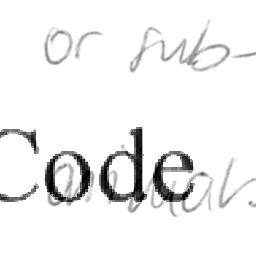 or sub-
Code
animals